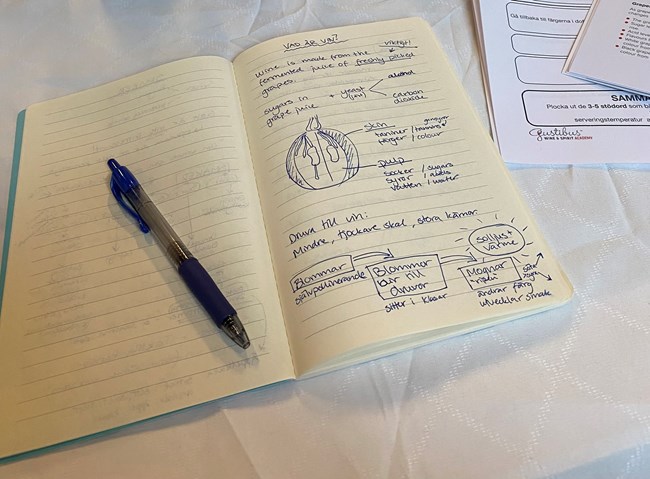 VAD ÄR VIN?
wine is made from the viktigt!
fermented juice of freshly picked
grapes.
sugars in
grape juice + yeast (jäst)
alcohol
carbon
dioxide
skin
tanniner / tannins
färger / colour
pulp
socker / sugars
syror / acids
vatten / water
Druva till vin:
Mindre, tjockare skal, stora kärnor.
solljus +
värme
Blommar
självpollinerande
Blommor
blir till
druvor
sitter i klasar
Mognar
ändrar färg
utvecklar smak
socker
syra
Gå tillbaka till färgerna i do
SAMMA
Plocka ut de 3-5 stödord som bä
serveringstemperatur
Gustibus
WINE & SPIRIT ACADEMY
Grape